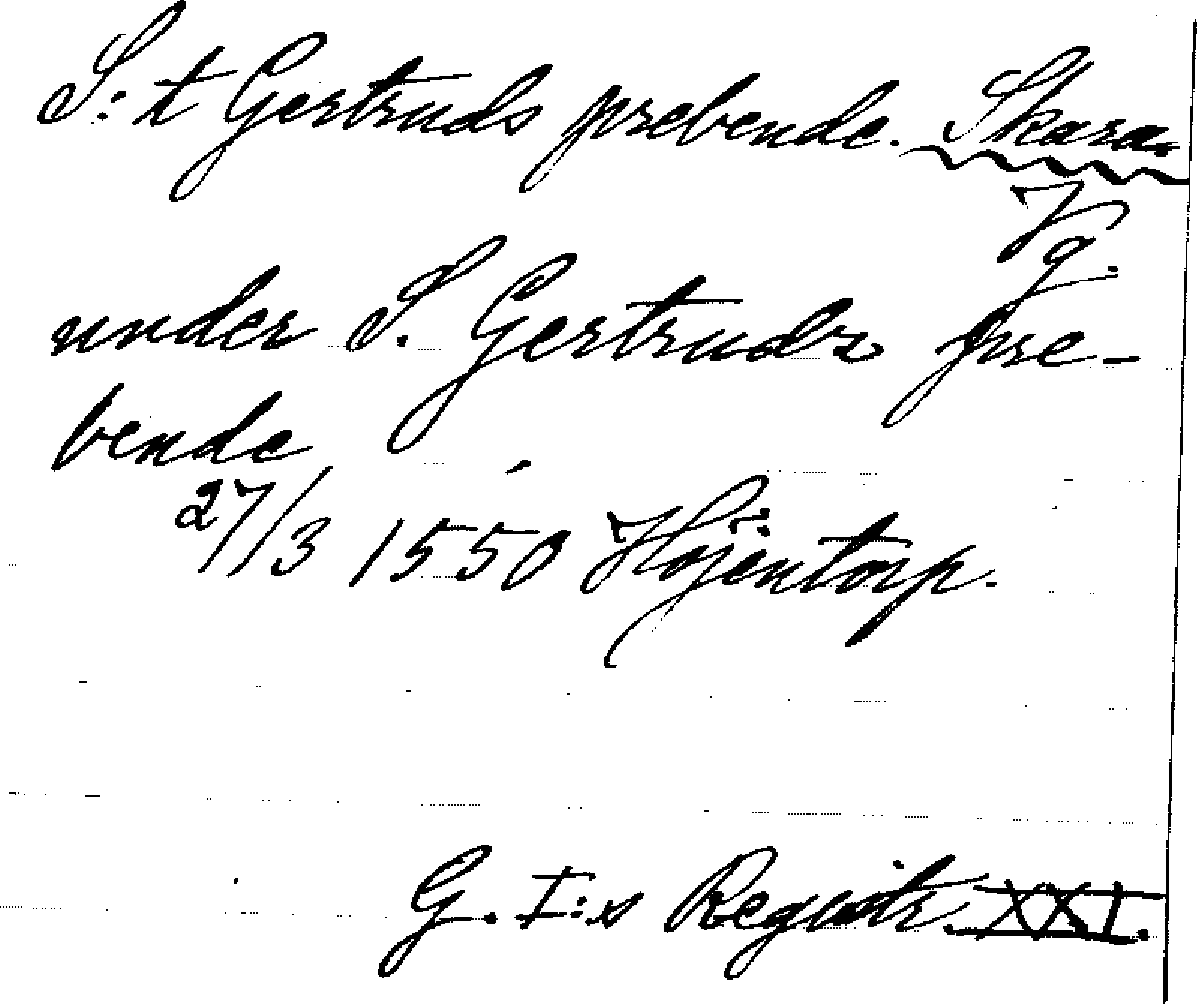 S:t Gertruds prebende. Skara.
Vg.
under S. Gertrudz pre-
bende
27/3 1550 Höjentorp.
G. I:s Registr. XXI.